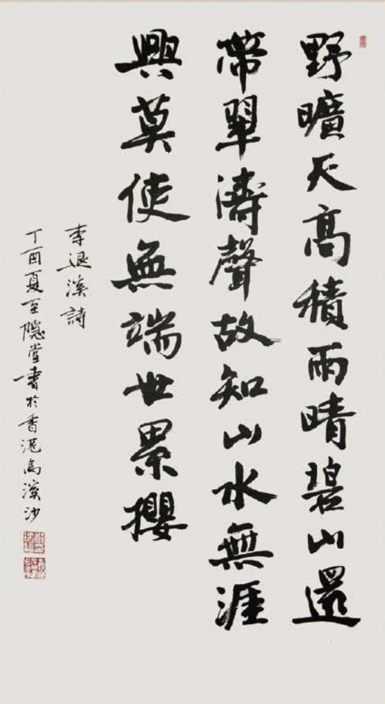 野曠天高積雨晴碧山還
帶翠濤聲故知山水無涯
興莫使無端世累攖
李退溪詩
丁酉夏至隱堂書於香港烏溪沙